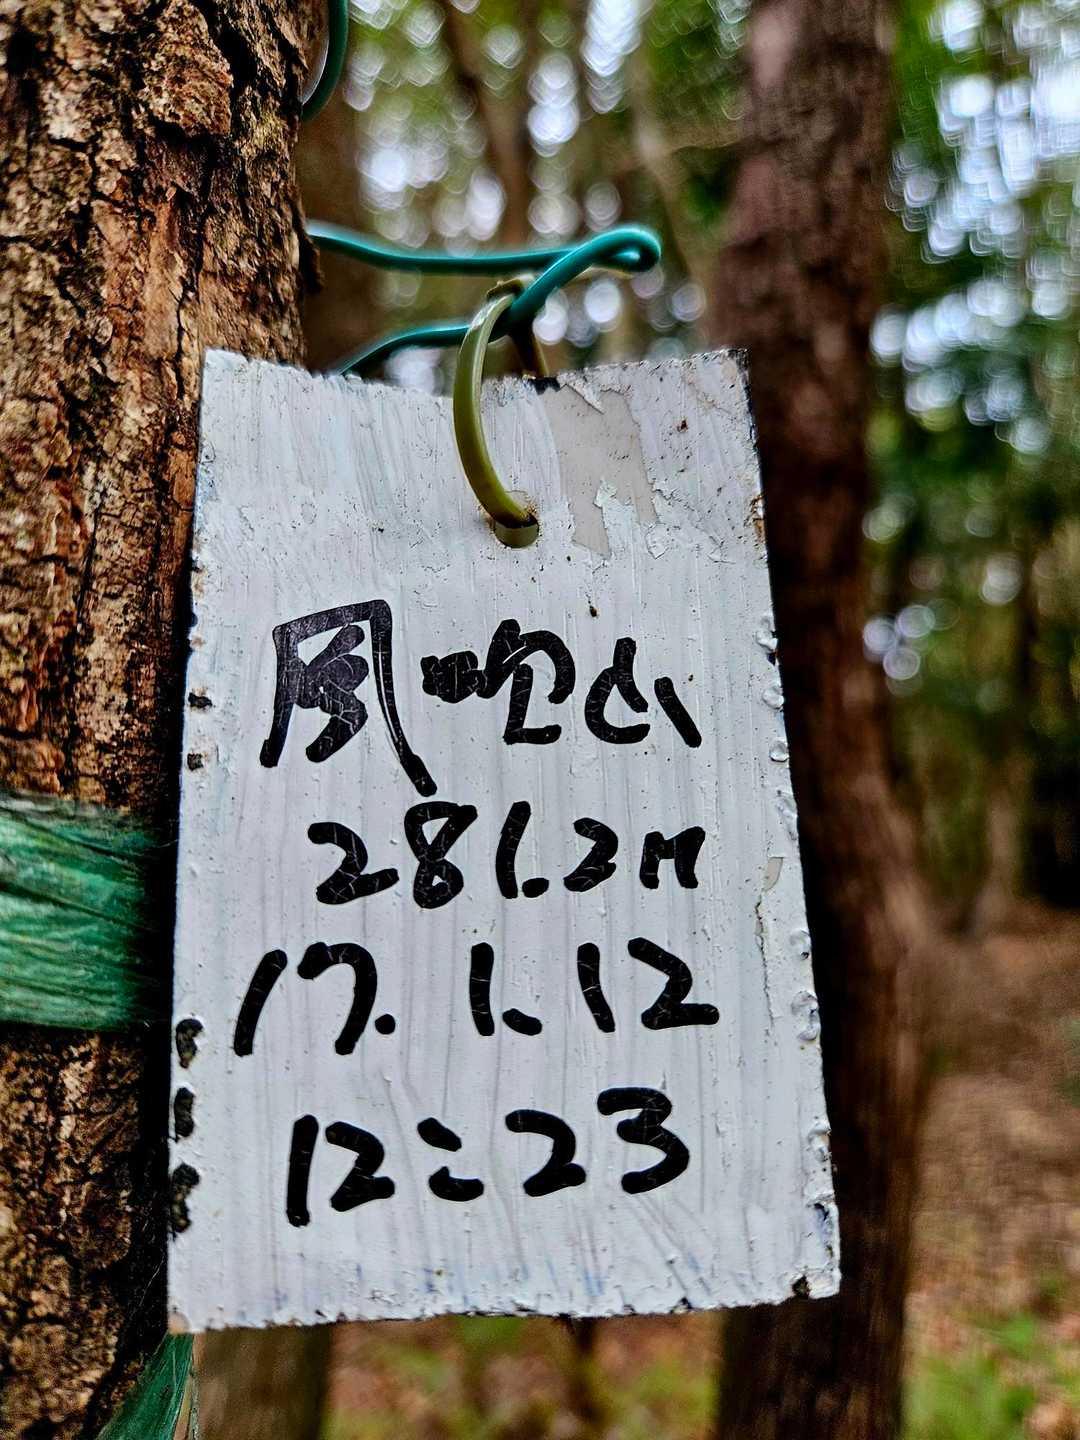 風吹山
281.2M
17.1.12
12:23